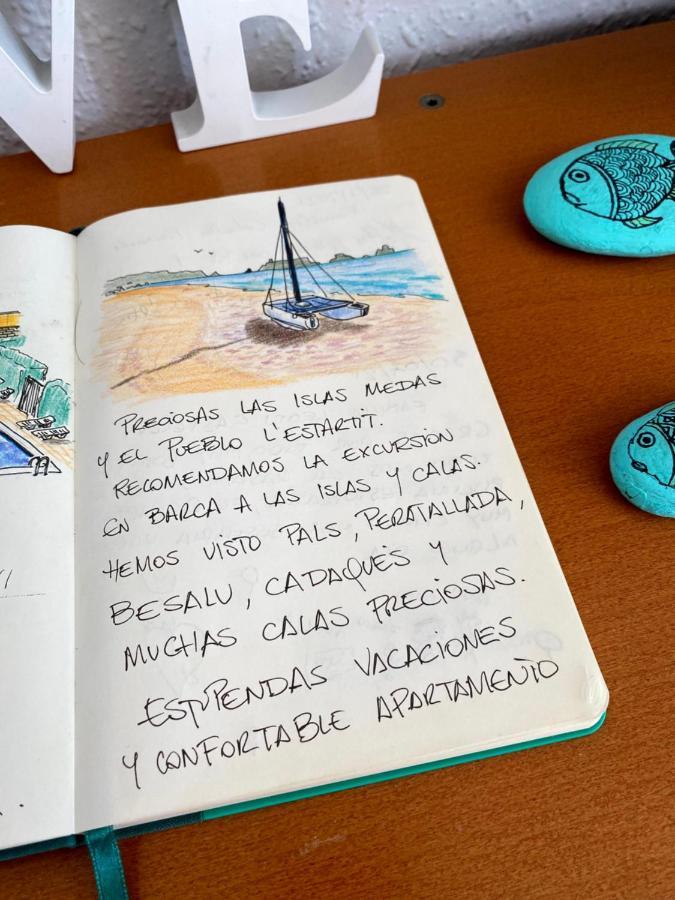 NE
PRECIOSAS LAS ISLAS MEDAS
Y EL PUEBLO L'ESTARTIT.
RECOMENDAMOS LA EXCURSIÓN
EN BARCA A LAS ISLAS Y CALAS.
HEMOS VISTO PALS, PERATALLADA,
BESALU, CADAQUÉS Y
MUCHAS CALAS PRECIOSAS.
ESTUPENDAS VACACIONES
Y CONFORTABLE APARTAMENTO